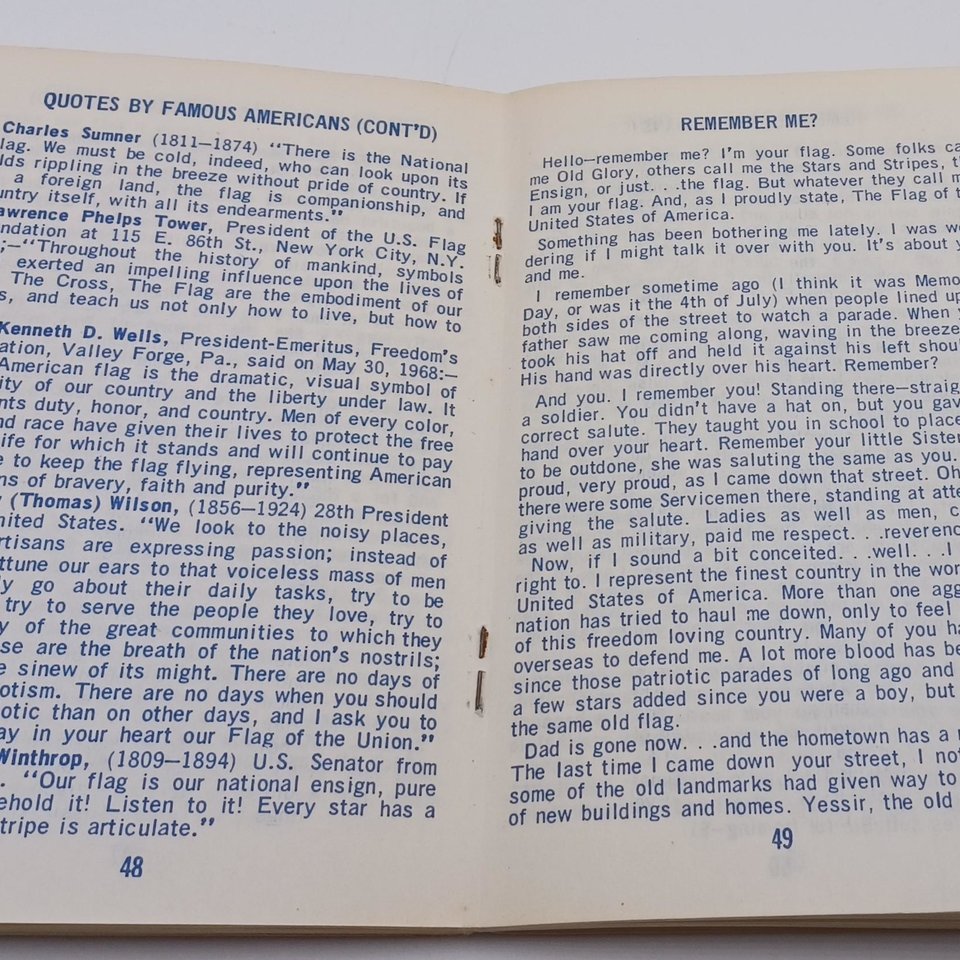 QUOTES BY FAMOUS AMERICANS (CONT'D)
Charles Sumner (1811—1874) “There is the National
lag. We must be cold, indeed, who can look upon its
lds rippling in the breeze without pride of country. If
a foreign land, the flag is companionship, and
untry itself, with all its endearments.”
awrence Phelps Tower, President of the U.S. Flag
undation at 115 E. 86th St., New York City, N.Y.
;—“Throughout the history of mankind, symbols
exerted an impelling influence upon the lives of
The Cross, The Flag are the embodiment of our
s, and teach us not only how to live, but how to
Kenneth D. Wells, President-Emeritus, Freedom's
ation, Valley Forge, Pa., said on May 30, 1968:—
American flag is the dramatic, visual symbol of
ity of our country and the liberty under law. It
nts duty, honor, and country. Men of every color,
nd race have given their lives to protect the free
life for which it stands and will continue to pay
e to keep the flag flying, representing American
ns of bravery, faith and purity.”
(Thomas) Wilson, (1856—1924) 28th President
nited States. “We look to the noisy places,
rtisans are expressing passion; instead of
ttune our ears to that voiceless mass of men
ly go about their daily tasks, try to be
try to serve the people they love, try to
y of the great communities to which they
se are the breath of the nation's nostrils;
e sinew of its might. There are no days of
otism. There are no days when you should
otic than on other days, and I ask you to
ay in your heart our Flag of the Union.”
Winthrop, (1809—1894) U.S. Senator from
. “Our flag is our national ensign, pure
ehold it! Listen to it! Every star has a
tripe is articulate.”
48
REMEMBER ME?
Hello—remember me? I'm your flag. Some folks ca
me Old Glory, others call me the Stars and Stripes, t
Ensign, or just. . .the flag. But whatever they call m
I am your flag. And, as I proudly state, The Flag of t
United States of America.
Something has been bothering me lately. I was wo
dering if I might talk it over with you. It's about y
and me.
I remember sometime ago (I think it was Memo
Day, or was it the 4th of July) when people lined up
both sides of the street to watch a parade. When y
father saw me coming along, waving in the breeze
took his hat off and held it against his left shoul
His hand was directly over his heart. Remember?
And you. I remember you! Standing there—straig
a soldier. You didn't have a hat on, but you gav
correct salute. They taught you in school to place
hand over your heart. Remember your little Sister
to be outdone, she was saluting the same as you.
proud, very proud, as I came down that street. Oh
there were some Servicemen there, standing at atte
giving the salute. Ladies as well as men, c
as well as military, paid me respect. . .reverenc
Now, if I sound a bit conceited. . .well. . .I
right to. I represent the finest country in the wor
United States of America. More than one agg
nation has tried to haul me down, only to feel
of this freedom loving country. Many of you ha
overseas to defend me. A lot more blood has be
since those patriotic parades of long ago and
a few stars added since you were a boy, but
the same old flag.
Dad is gone now. . .and the hometown has a n
The last time I came down your street, I not
some of the old landmarks had given way to
of new buildings and homes. Yessir, the old
49